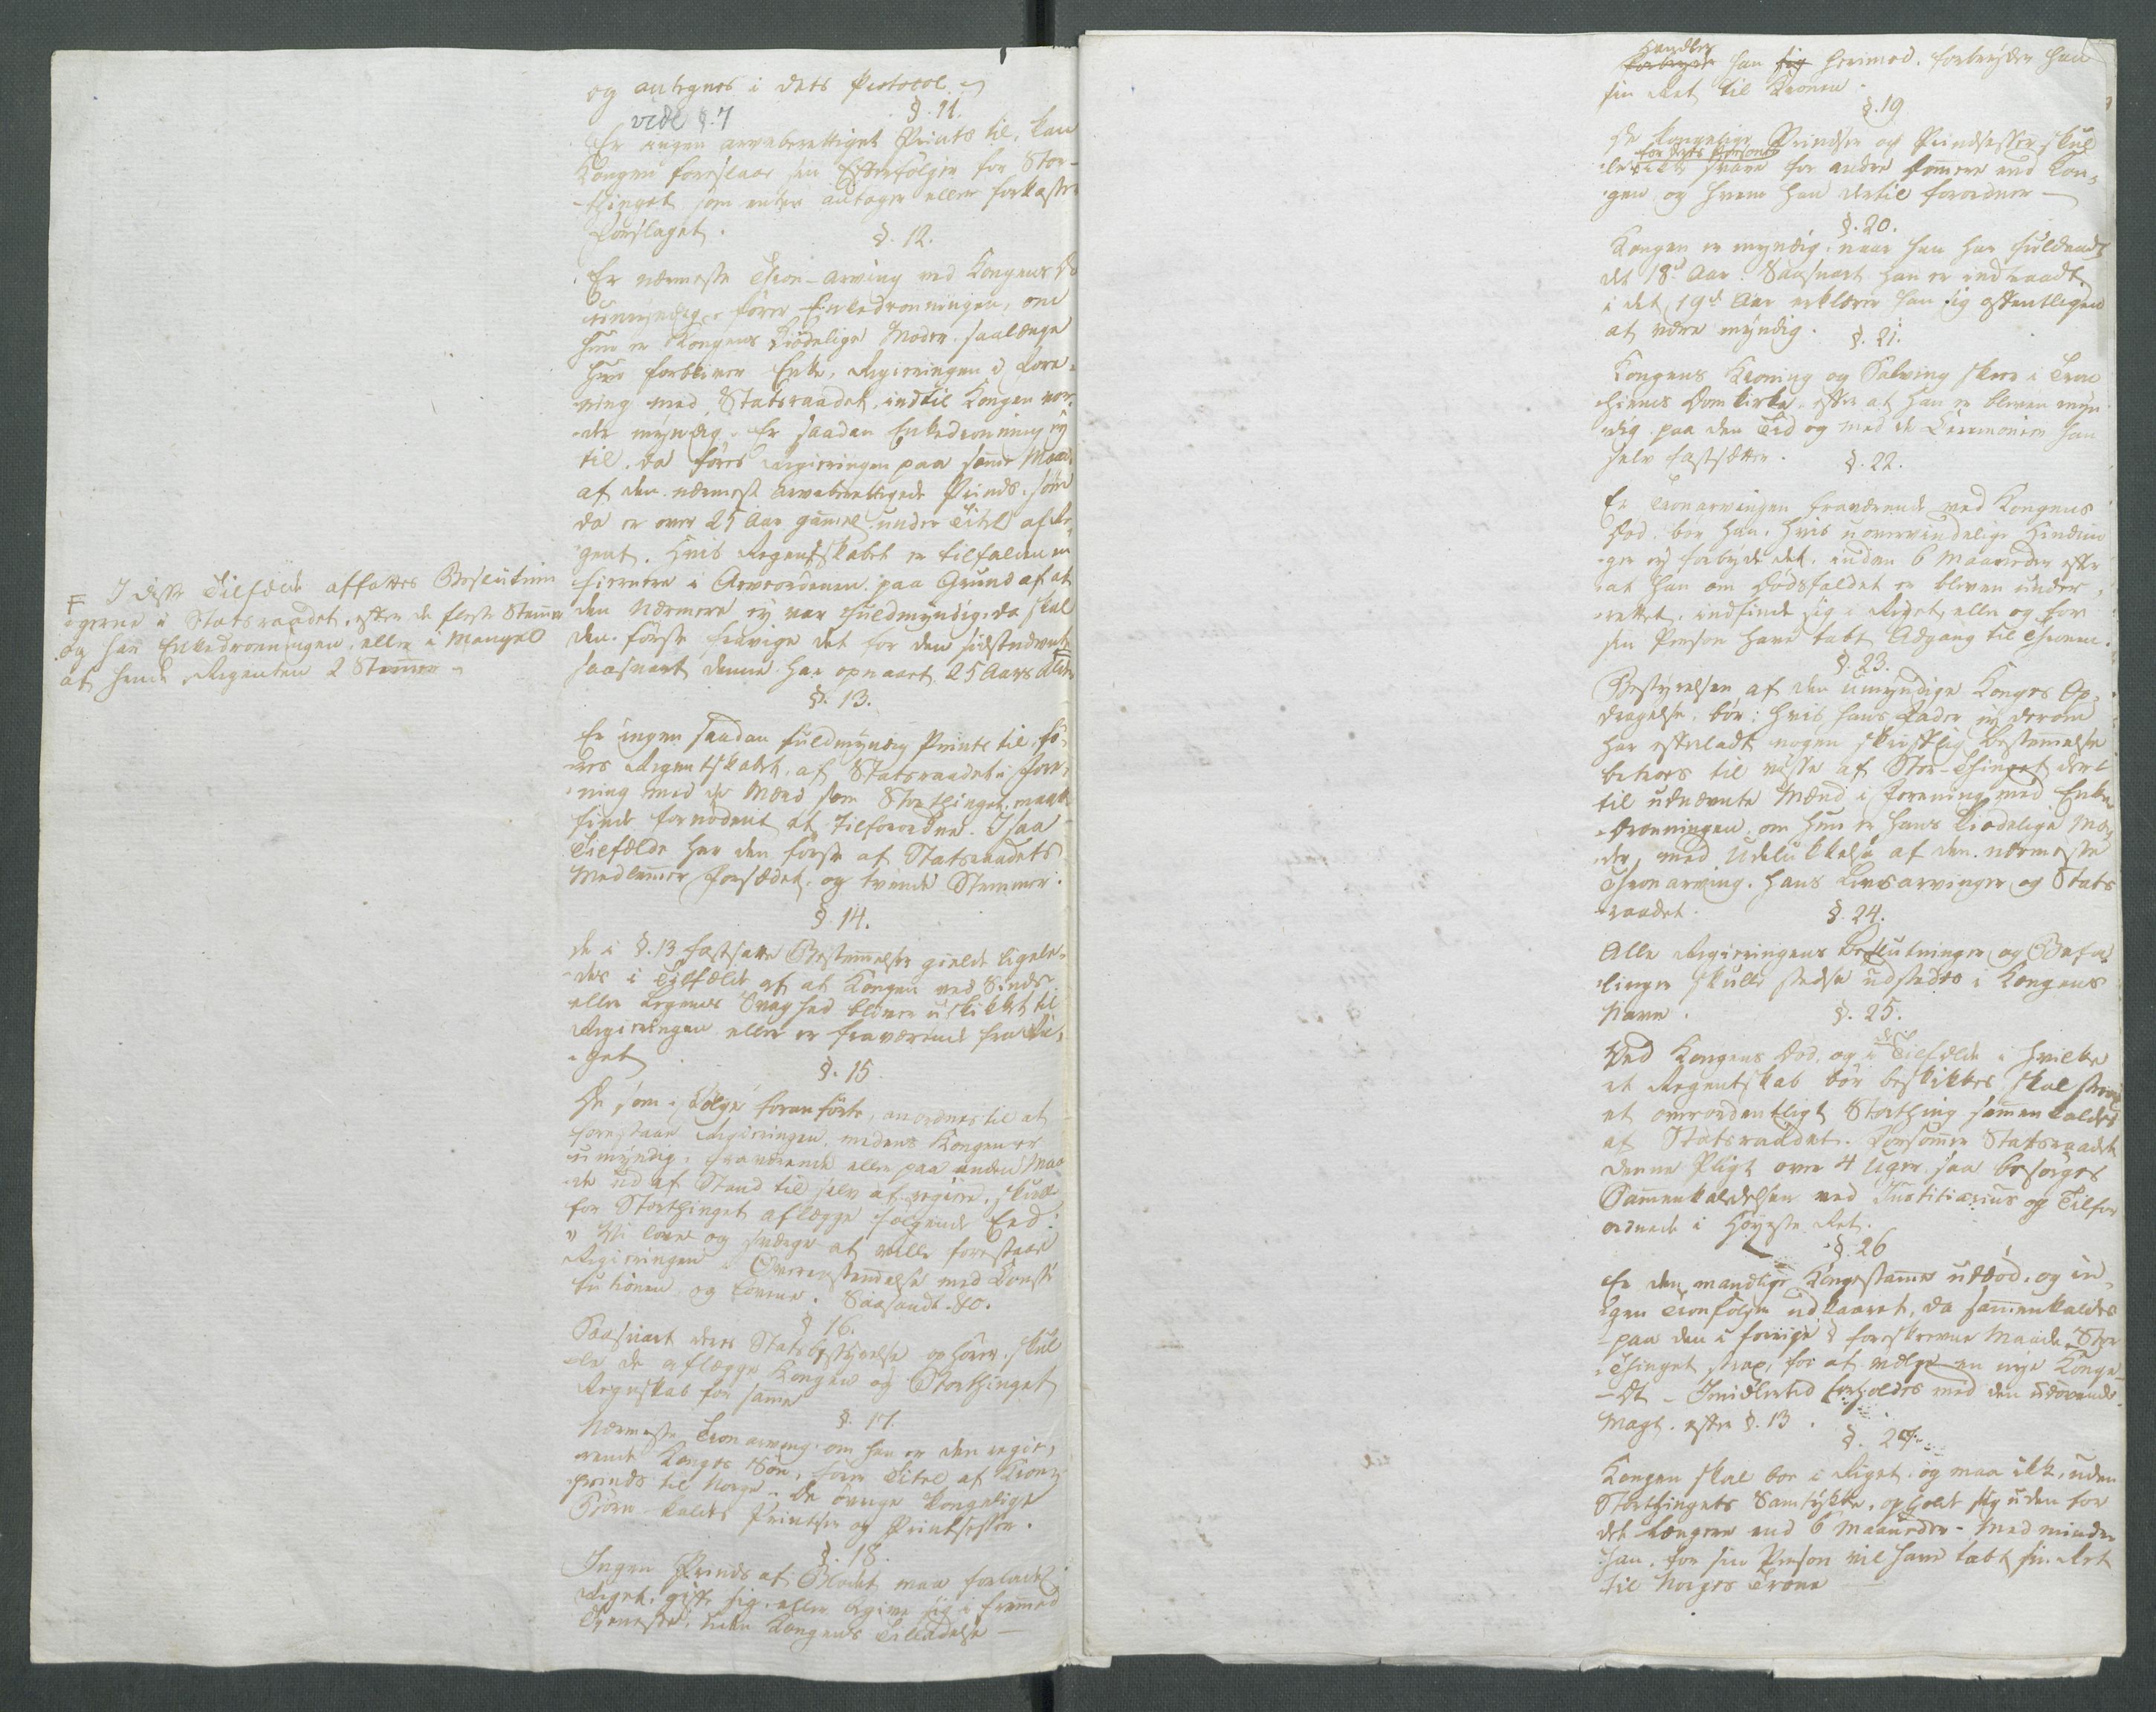 og antegnes i dets Protocol.
vide §.7
§.11.
Er ingen arveberettiget Prints til, kan
Kongen foreslaae sin Efterfölger for Stor-
-thinget som enten antager eller forkaster
Forslaget.
§.12.
Er nærmeste Thron-arving ved Kongens Död
umyndig, förer Enkedronningen, om
hun er Kongens kiödelige Moder, saalænge
hun forbliver Enke, Regieringen i Fore-
-ning med Statsraadet, indtil Kongen vor-
-der myndig. Er saadan Enkedronning ey
til, da föres Regieringen paa samme Maade
af den nærmest arveberettigede Prinds, som
da er over 25 Aar gammel under Titel af Re-
gent. Hvis Regentskabet er tilfalden en
fiernere i Arveordenen paa Grund af at
den Nærmere ey var fuldmyndig, da skal
den förste fravige det for den sidstnævnte
saasnart denne har opnaaet 25 Aars Alder
F I disse Tilfælde affattes Beslutnin
-gerne i Statsraadet, efter de fleste Stemmer
og har Enkedronningen, eller i Mangel
af hende Regenten 2 Stemmer
§.13.
Er ingen saadan fuldmyndig Prints til, fö-
-res Regentskabet, af Statsraadet i Fore-
-ning med de Mænd som Storthinget maatte
finde fornödent at tilforordne. I saa
Tilfælde har den förste af Statsraadets
Medlemmer Forsædet, og tvende Stemmer.
§.14.
De i §.13 fastsatte Bestemmelser gielde ligele-
-des i Tilfælde af at Kongen ved Sinds-
eller Legems Svaghed bliver uskikket til
Regieringen eller er fraværende fra Ri-
-get
§.15
De som i Fölge foranförte, anordnes til at
forestaae Regieringen, medens Kongen er
umyndig, fraværende eller paa anden Maa-
-de ud af Stand til selv at regiere, skulle
for Storthinget aflægge fölgende Eed:
"Vi love og sværge at ville forestaae
Regieringen i Overensstemmelse med Consti
tutionen og Lovene. Saasandt &c.
§16.
Saasnart deres Statsbestyrelse ophörer, skul
-le de aflægge Kongen og Storthinget
Regnskab for samme
§.17.
Nærmeste Tronarving, om han er den regie-
-rende Konges Sön, förer Titel af Kron-
-prinds til Norge. De övrige kongelige
Börn kaldes Printser og Printsesser.
§.18.
Ingen Prinds af Blodet maa forlade
Riget, gifte sig, eller begive sig i fremmed
Tieneste, uden Kongens Tilladelse
Handler
forbryder han sig herimod, forbryder han
sin Ret til Kronen.
§.19
De kongelige Prindser og Prindsesser skul
for deres Personer
-le ikke svare for andre Dommere end Kon-
-gen, og hvem han dertil forordner
§.20.
Kongen er myndig, naar han har fuldendt
det 18de Aar. Saasnart han er indtraadt
i det 19de Aar erklærer han sig offentligen
at være myndig.
§.21.
Kongens Kroning og Salving skeer i Tron
-hiems Domkirke, efter at han er bleven myn
-dig paa den Tid og med de Ceremonier han
selv fastsætter.
§.22.
Er Tronarvingen fraværende ved Kongens
Död, bör han, hvis uovervindelige Hindrin
-ger ey forbyde det, inden 6 Maaneder efter
at han om Dödsfaldet er bleven under-
-rettet, indfinde sig i Riget, eller og for
sin Person have tabt Adgang til Thronen.
§.23.
Bestyrelsen af den umyndige Konges Op-
dragelse, bör, hvis hans Fader ey derom
har efterladt nogen skriftlig Bestemmelse
betroes til visse af Stor-Thinget der-
til udnævnte Mænd i Forening med Enke
-dronningen, om hun er hans kiödelige Mo-
-der, med Udelukkelse af den nærmeste
Thronarving, hans Livsarvinger og Stats
-raadet.
§.24.
Alle Regieringens Beslutninger og Befa-
-linger skulle stedse udstedes i Kongens
Navn.
§.25.
de
Ved Kongens Död, og i Tilfælde i hvilke
et Regentskab bör beskikkes, skal strax
et overordentligt Storthing sammenkaldes
af Statsraadet. Forsömmer Statsraadet
denne Pligt over 4 Uger saa besörges
Sammenkaldelsen ved Justitiarius og Tilfor
ordnede i Höyeste Ret.
§.26
Er den mandlige Kongestamme uddöd, og in-
-gen Tronfölger udkaaret, da sammenkaldes
paa den i forrige § foreskrevne Maade Stor
-Thinget strax, for at vælge en nye Konge-
-Æt - Imidlertid forholdes med den udövende
Magt, efter §.13.
§.27.
Kongen skal boe i Riget, og maa ikke, uden
Storthingets Samtykke, opholde sig uden for
det længere end 6 Maaneder - Med mindre
han, for sin Person vil have tabt sin Ret
til Norges Trone